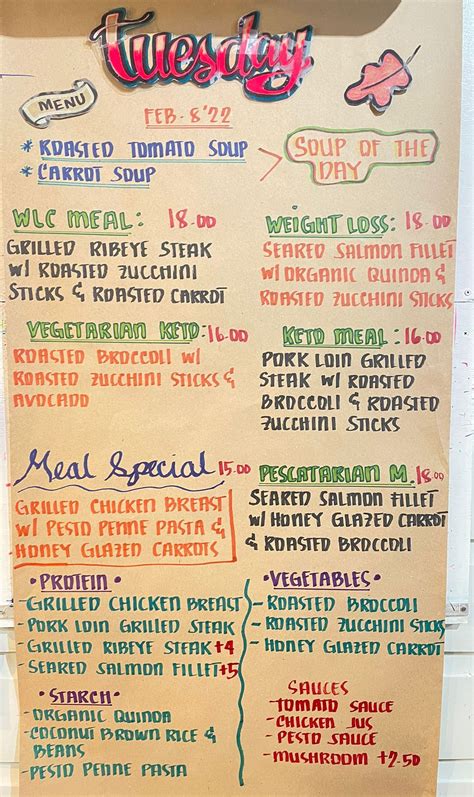 tuesday
MENU
FEB. 8'22
* ROASTED TOMATO SOUP
* CARROT SOUP
SOUP OF THE
DAY
WLC MEAL: 18.00
GRILLED RIBEYE STEAK
W/ ROASTED ZUCCHINI
STICKS & ROASTED CARROT
WEIGHT LOSS: 18.00
SEARED SALMON FILLET
W/ ORGANIC QUINOA &
ROASTED ZUCCHINI STICKS
VEGETARIAN KETO: 16.00
ROASTED BROCCOLI W/
ROASTED ZUCCHINI STICKS &
AVOCADO
KETO MEAL: 16.00
PORK LOIN GRILLED
STEAK W/ ROASTED
BROCCOLI & ROASTED
ZUCCHINI STICKS
Meal Special 15.00
GRILLED CHICKEN BREAST
W/ PESTO PENNE PASTA &
HONEY GLAZED CARROTS
PESCATARIAN M. 18.00
SEARED SALMON FILLET
W/ HONEY GLAZED CARROT
& ROASTED BROCCOLI
• PROTEIN •
- GRILLED CHICKEN BREAST
- PORK LOIN GRILLED STEAK
- GRILLED RIBEYE STEAK +4
- SEARED SALMON FILLET +5
• STARCH •
- ORGANIC QUINOA
- COCONUT BROWN RICE &
BEANS
- PESTO PENNE PASTA
• VEGETABLES •
- ROASTED BROCCOLI
- ROASTED ZUCCHINI STICKS
- HONEY GLAZED CARROT
SAUCES
- TOMATO SAUCE
- CHICKEN JUS
- PESTO SAUCE
- MUSHROOM +2.50